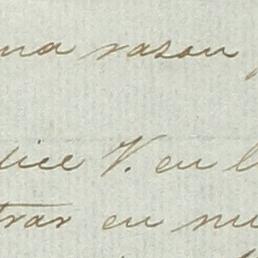 na razon
dice V. en l
trar en nu